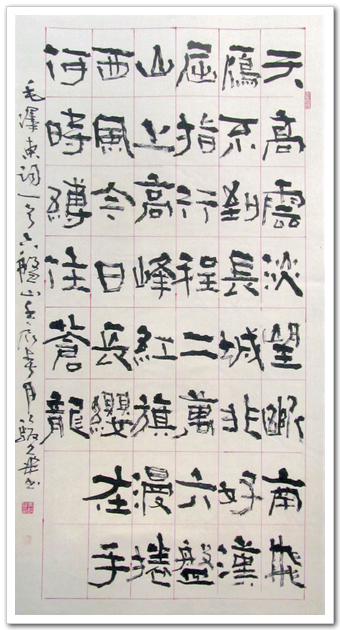 天高雲淡望斷南飛
雁不到長城非好漢
屈指行程二萬六盤
山上高峰紅旗漫捲
西風今日長纓在手
何時縛住蒼龍
毛澤東詞一首六盤山壬辰春月書